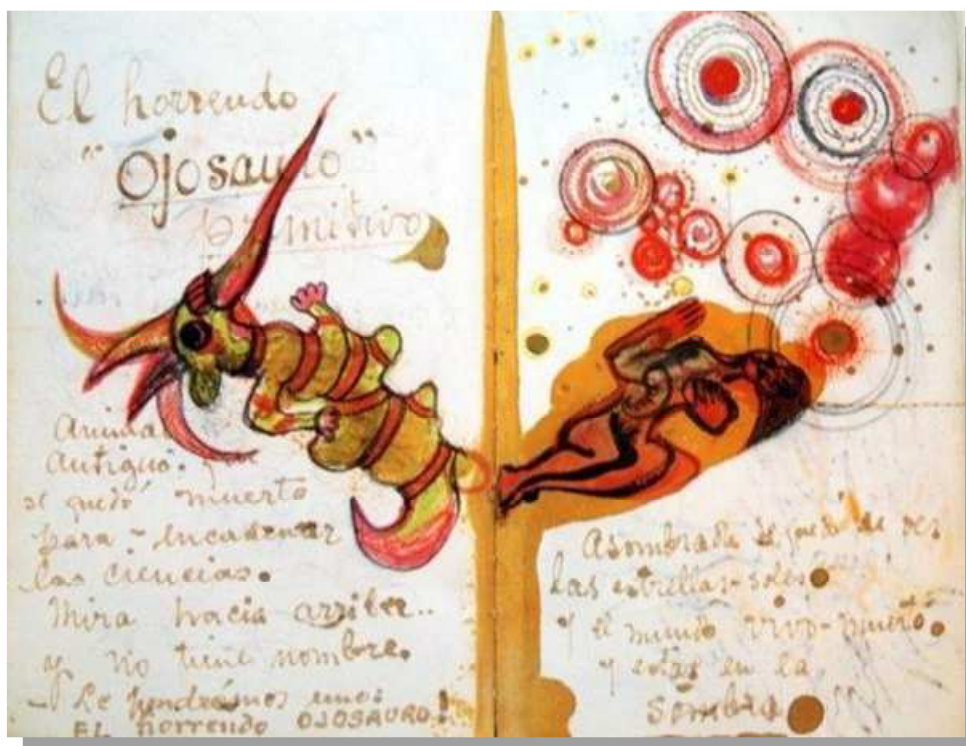 El horrendo
"Ojosauro"
primitivo
Animal
antiguo. que
se quedó muerto
para encadenar
las ciencias.
Mira hacia arriba..
y no tiene nombre.
- Le pondrémos uno:
EL horrendo OJOSAURO!
Asombrada se quedó de ver
las estrellas-soles
y el mundo vivo-muerto.
y estar en la
sombra